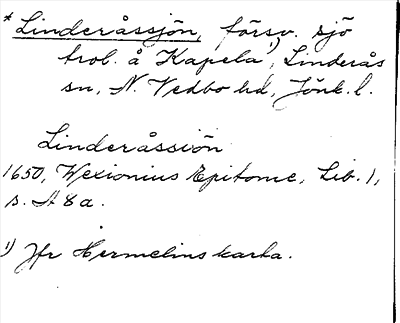 * Linderåssjön, försv. sjö
trol. å Kapela¹⁾, Linderås
sn, N. Vedbo hd, Jönk. l.
Linderåssiön
1650, Wexionius Epitome, Lib. 1,
s. A 8 a.
¹⁾ Jfr Hermelins karta.